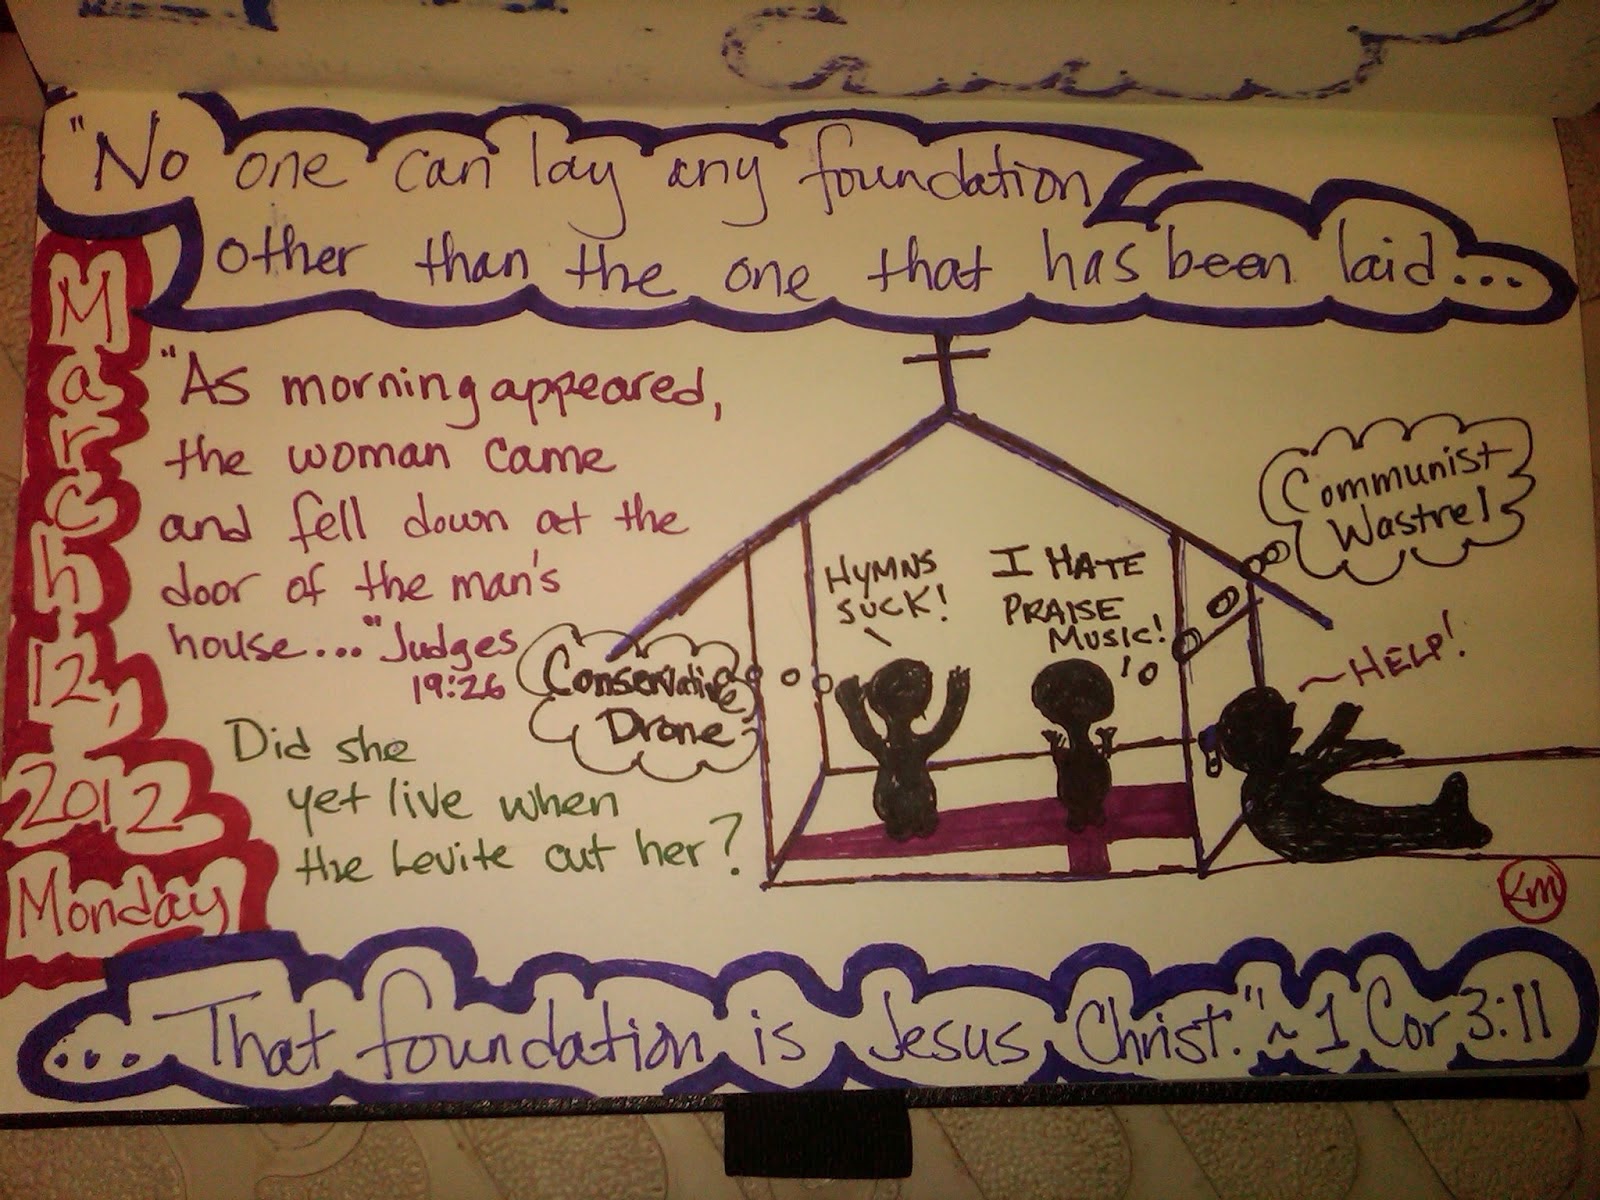 "No one can lay any foundation
other than the one that has been laid...
March
12,
2012
Monday
"As morning appeared,
the woman came
and fell down at the
door of the man's
house..." Judges
19:26
Did she
yet live when
the Levite cut her?
Conservative
Drone
HYMNS
SUCK!
I HATE
PRAISE
MUSIC!
Communist
Wastrel
~HELP!
KM
... That foundation is Jesus Christ." ~ 1 Cor 3:11